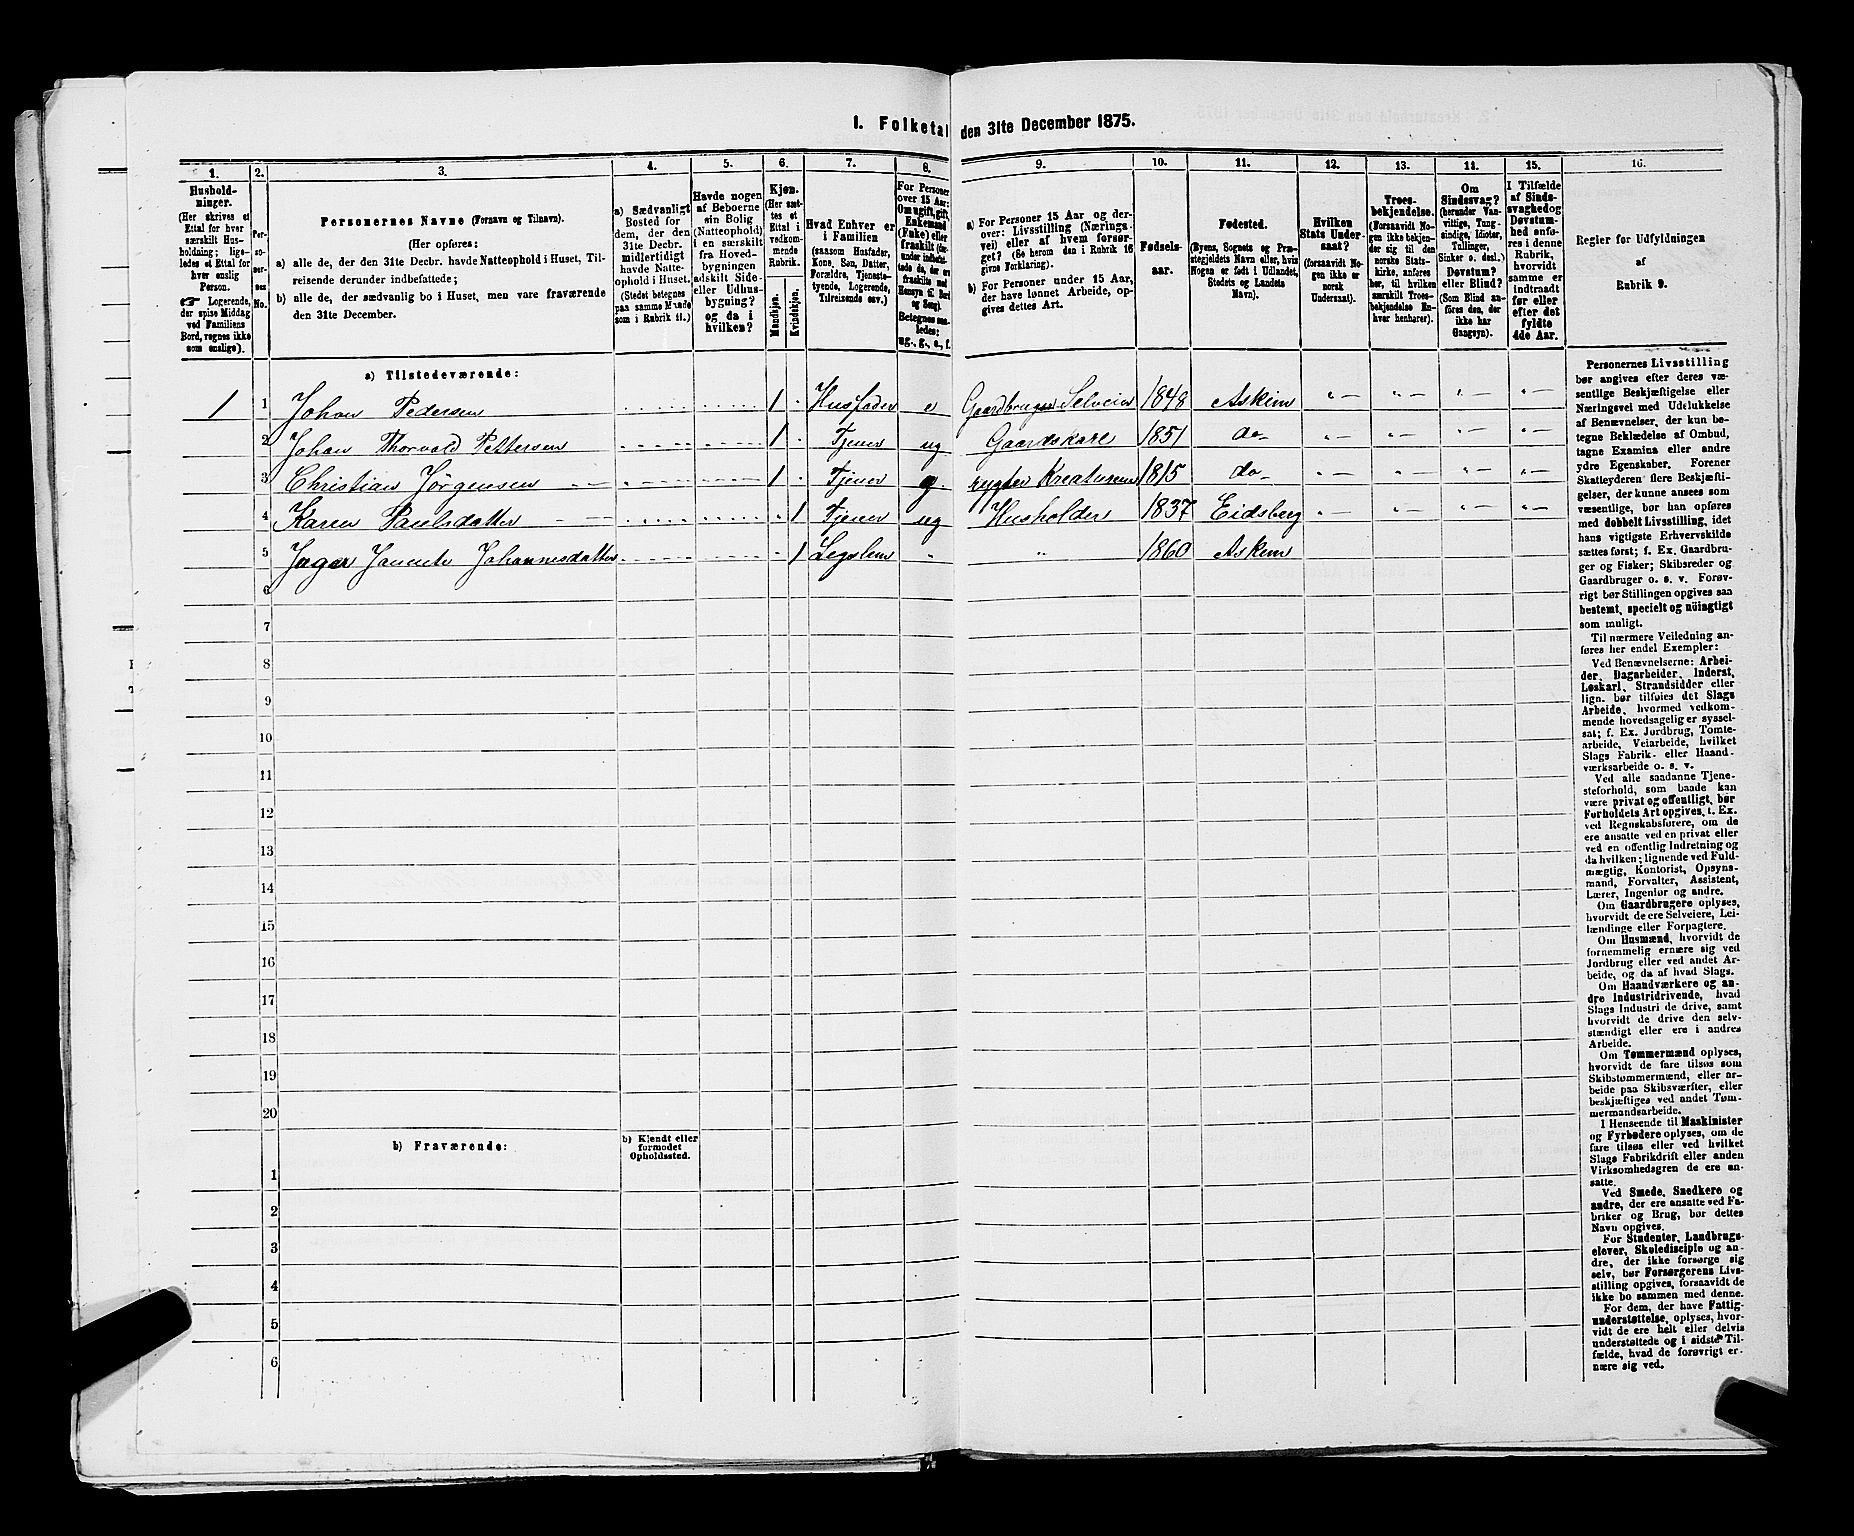 1. Folketal den 31te December 1875.
1. 2. 3. 4. 5. 6. 7. 8. 9. 10. 11. 12. 13. 14. 15. 16.
Hushold-
ninger.
(Her skrives et
Ettal for hver
særskilt Hus-
holdning; lige-
ledes et Ettal for
hver enslig
Person.
☞ Logerende,
der spise Middag
ved Familiens
Bord, regnes ikke
som enslige).
Per-
so-
ner-
nes
No.
Personernes Navne (Fornavn og Tilnavn).
(Her opføres:
a) alle de, der den 31te Decbr. havde Natteophold i Huset, Til-
reisende derunder indbefattede;
b) alle de, der sædvanlig bo i Huset, men vare fraværende
den 31te December.
a) Sædvanligt
Bosted for
dem, der den
31te Decbr.
midlertidigt
havde Natte-
ophold i Huset.
(Stedet betegnes
paa samme Maade
som i Rubrik 11.)
Havde nogen
af Beboerne
sin Bolig
(Natteophold)
i en særskilt
fra Hoved-
bygningen
adskilt Side-
eller Udhus-
bygning?
og da i
hvilken?
Kjøn.
(Her sæt-
tes et
Ettal i
vedkom-
mende
Rubrik.
Mandkjøn.
Kvindekjøn.
Hvad Enhver er
i Familien
(saasom Husfader,
Kone, Søn, Datter,
Forældre, Tjeneste-
tyende, Logerende,
Tilreisende osv.)
For Personer
over 15 Aar:
Om ugift, gift,
Enkemand
(Enke) eller
fraskilt
Betegnes saa-
ledes:
ug., g., e., f.
a) For Personer 15 Aar og der-
over: Livsstilling (Nærings-
vei) eller af hvem forsør-
get? (Se herom den i Rubrik 16
givne Forklaring).
b) For Personer under 15 Aar,
der have lønnet Arbeide, op-
gives dettes Art.
Fødsels-
aar.
Fødested.
(Byens, Sognets og Præ-
stegjeldets Navn eller, hvis
Nogen er født i Udlandet,
Stedets og Landets
Navn).
Hvilken
Stats Under-
saat?
(forsaavidt No-
gen ikke er
norsk
Undersaat).
Troes-
bekjendelse.
(Forsaavidt No-
gen ikke bekjen-
der sig til den
norske Stats-
kirke, anføres
her, til hvilken
særskilt Troes-
bekjendelse En-
hver henhører).
Om
Sindssvag?
(herunder Van-
vittige, Tung-
sindige, Idioter,
Tullinger,
Sinker o. desl.)
Døvstum?
eller Blind?
(Som Blind an-
føres den, der
ikke har
Gangsyn).
I Tilfælde
af Sinds-
svaghed og
Døvstum-
hed anfø-
res i denne
Rubrik,
hvorvidt
samme er
indtraadt
før eller
efter det
fyldte
4de Aar.
Regler for Udfyldningen
af
Rubrik 9.
a) Tilstedeværende:
1 1 Johan Pedersen 1 Husfader e Gaardbruger Selveier 1848 Askim " — " — " — " —
2 Johan Thorvald Pettersen 1 Tjener ug Gaardskarl 1851 do " — " — " — " —
3 Christian Jörgensen 1 Tjener g rygter Kreaturene 1815 do " — " — " — " —
4 Karen Paulsdatter 1 Tjener ug Husholder 1837 Eidsberg " — " — " — " —
5 Johannesdatter 1 Legslem " " 1860 Askim
6
7
8
9
10
11
12
13
14
15
16
17
18
19
20
b) Fraværende:
b) Kjendt eller
formodet
Opholdssted.
1
2
3
4
5
6
Personernes Livsstilling
bør angives efter deres væ-
sentlige Beskjæftigelse eller
Næringsvei med Udelukkelse
af Benævnelser, der kun be-
tegne Beklædelse af Ombud,
tagne Examina eller andre
ydre Egenskaber. Forener
Skatteyderen flere Beskjæfti-
gelser, der kunne ansees som
væsentlige, bør han opføres
med dobbelt Livsstilling, idet
hans vigtigste Erhvervskilde
sættes først; f. Ex. Gaardbru-
ger og Fisker; Skibsreder og
Gaardbruger o. s. v. Forøv-
rigt bør Stillingen opgives saa
bestemt, specielt og nöiagtigt
som muligt.
Til nærmere Veiledning an-
føres her endel Exempler:
Ved Benævnelserne: Arbei-
der, Dagarbeider, Inderst,
Løskarl, Strandsidder eller
lign. bør tilføies det Slags
Arbeide, hvormed vedkom-
mende hovedsagelig er syssel-
sat; f. Ex. Jordbrug, Tomte-
arbeide, Veiarbeide, hvilket
Slags Fabrik- eller Haand-
værksarbeide o. s. v.
Ved alle saadanne Tjene-
steforhold, som baade kan
være privat og offentligt, bør
Forholdets Art opgives, t. Ex.
ved Regnskabsførere, om de
ere ansatte ved en privat eller
ved en offentlig Indretning og
da hvilken; lignende ved Fuld-
mægtig, Kontorist, Opsyns-
mand, Forvalter, Assistent,
Lærer, Ingeniør og andre.
Om Gaardbrugere oplyses,
hvorvidt de ere Selveiere, Lei-
lændinge eller Forpagtere.
Om Husmænd, hvorvidt de
fornemmelig ernære sig ved
Jordbrug eller ved andet Ar-
beide, og da af hvad Slags.
Om Haandværkere og an-
dre Industridrivende, hvad
Slags Industri de drive, samt
hvorvidt de drive den selv-
stændigt eller ere i andres
Arbeide.
Om Tømmermænd oplyses,
hvorvidt de fare tilsøs som
Skibstømmermænd, eller ar-
beide paa Skibsværfter, eller
beskjæftiges ved andet Tøm-
mermandsarbeide.
I Henseende til Maskinister
og Fyrbødere oplyses, om de
fare tilsøs eller ved hvilket
Slags Fabrikdrift eller anden
Virksomhedsgren de ere an-
satte.
Ved Smede, Snedkere og
andre, der ere ansatte ved Fa-
briker og Brug, bør dettes
Navn opgives.
For Studenter, Landbrugs-
elever, Skoledisciple og an-
dre, der ikke forsørge sig
selv, bør Forsørgerens Livs-
stilling opgives, forsaavidt de
ikke bo sammen med denne.
For dem, der have Fattig-
understøttelse, oplyses, hvor-
vidt de ere helt eller delvis
understøttede og i sidste Til-
fælde, hvad de forøvrigt er-
nære sig ved.